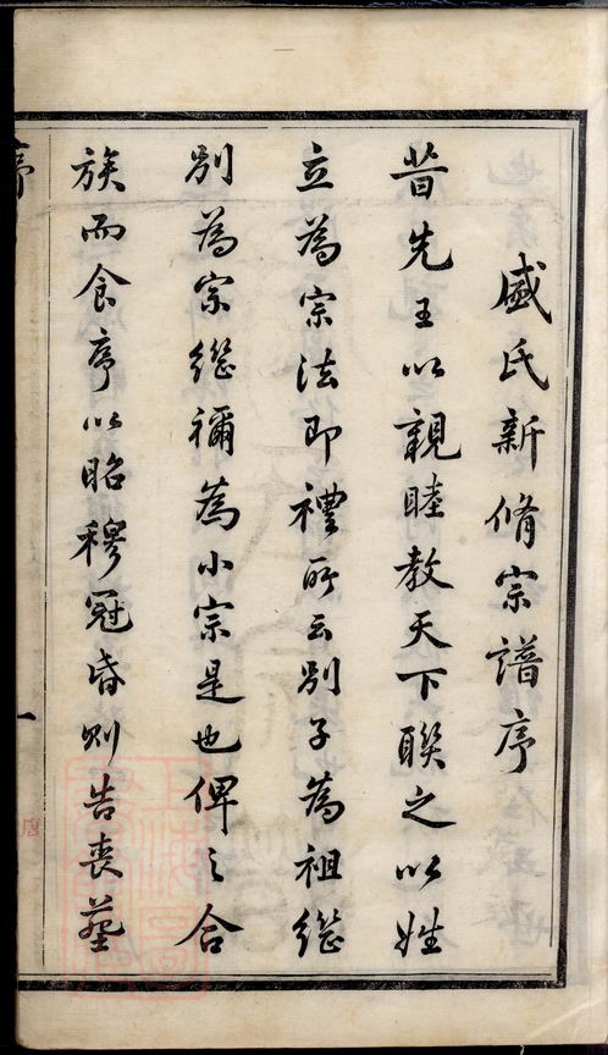 盛氏新脩宗譜序
昔先王以親睦教天下聯之以姓
立為宗法即禮所云別子為祖繼
別為宗繼禰為小宗是也俾之合
族而食序以昭穆冠昏則告喪葬
序
一